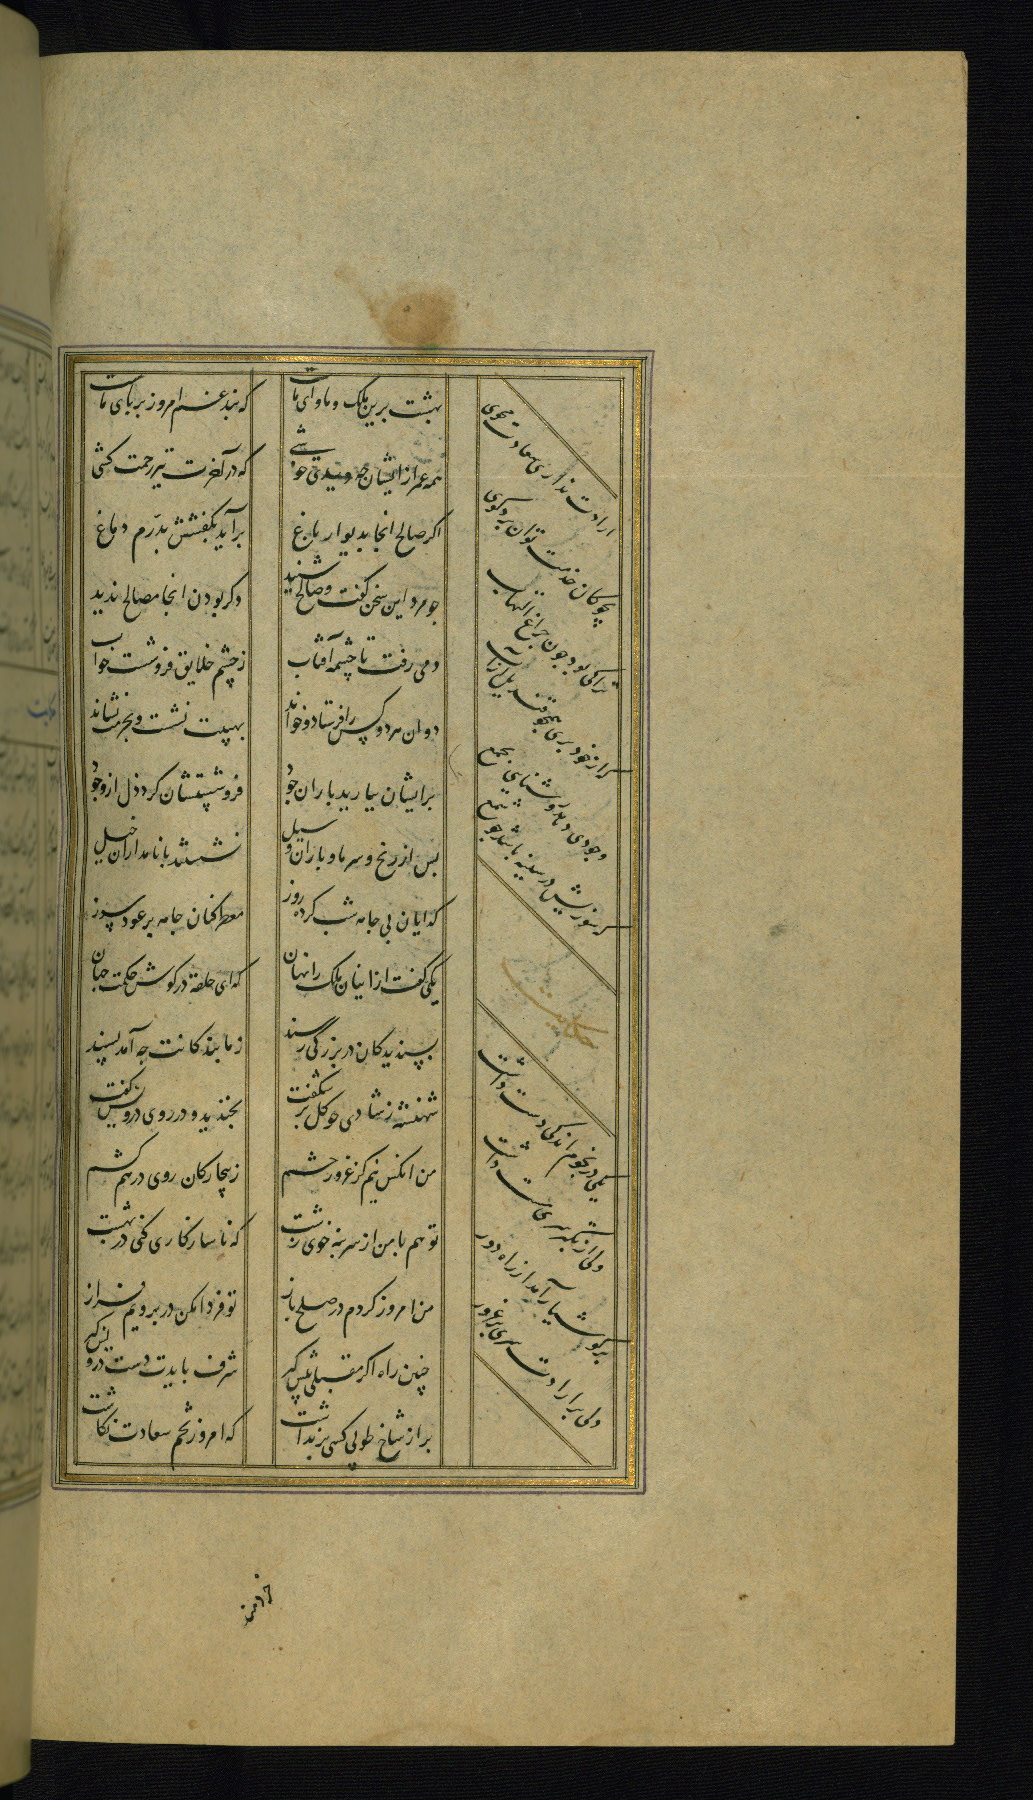 بهشت برین ملک و ماوای ماست
که بند غم امروز بر پای ماست
همه عمر ازایشان چه دیدی خوشی
که در آخرت نیز رحمت کشی
اکر صالح انجا بدیوار باغ
برآید بکفشش بدرم دماغ
چو مرد این سخن کفت و صالح شنید
دکر بودن انجا مصالح ندید
دمی رفت تا چشمه آفتاب
ز چشم خلایق فروشست خواب
دوان هر دو کس را فرستاد و خواند
بهیبت نشست و بحرمت نشاند
برایشان ببارید باران جود
فروشستشان کرد ذل از وجود
پس از رنج و سرما و باران و سیل
نشستند با نامداران خیل
کدایان بی جامه شب کرده روز
معطر کنان جامه بر عود سوز
یکی کفت ازاینان ملک را نهان
که ای حلقه در کوش حکمت جهان
پسندیدکان در بزرکی رسند
ز ما بندکانت چه آمد پسند
شهنشه ز شادی چو کل بر شکفت
بخندید و در روی درویش کفت
من انکس نیم کز غرور حشم
ز بیچارکان روی در هم کشم
تو هم با من از سر بنه خوی زشت
که ناسازکاری کنی در بهشت
من امروز کردم در صلح باز
تو فردا مکن در برویم فراز
چنین راه اکر مقبلی پیش کیر
شرف بایدت دست درویش کیر
بر از شاخ طوبی کسی برنداشت
که امروز تخم سعادت نکاشت
ارادت نداری سعادت مجوی
بچوکان خدمت توان برد کوی
ترا کی بود چون چراغ التهاب
که از خود پری همچو قندیل از آب
وجودی دهد روشنایی بجمع
که سوزیش در سینه باشد چو شمع
حکایت
یکی در نجوم اندکی دست داشت
ولی از تکبر سری مست داشت
بر کوشیار آمد از راه دور
دلی پر ارادت سری پر غرور
خردمند